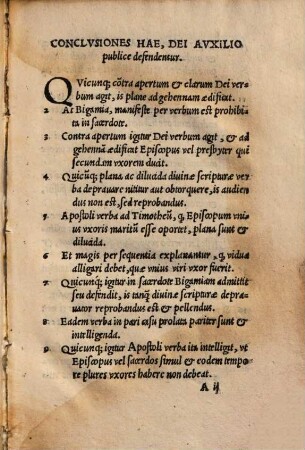 CONCLVSIONES HAE, DEI AVXILIO
publice defendentur.
QVicunq; cõtra apertum & clarum Dei ver-
bum agit, is plane ad gehennam ædificat.
2 At Bigamia, manifeste per verbum est prohibi
ta in sacerdote.
3 Contra apertum igitur Dei verbum agit, & ad
gehennã ædificat Episcopus vel presbyter qui
secundam vxorem ducit.
4 Quicũq; plana ac dilucida diuinæ scripturæ ver
ba deprauare nititur aut obtorquere, is audien
dus non est, sed reprobandus.
5 Apostoli verba ad Timotheũ, q, Episcopum vni
us vxoris maritũ esse oporteat, plana sunt &
dilucida.
6 Et magis per sequentia explanantur, q, vidua
alligari debet, quæ vnius viri vxor fuerit.
7 Quicunq; igitur in sacerdote Bigamian admittit
seu defendit, is tanq̃ diuinæ scripturæ depra-
uator reprobandus est & pellendus.
8 Eadem verba in pari casu prolata pariter sunt &
intelligenda.
9 Quicunq; igitur Apostoli verba ita intelligit, vt
Episcopus vel sacerdos simul & eodem tempo
re plures vxores habere non debeat.
A ij